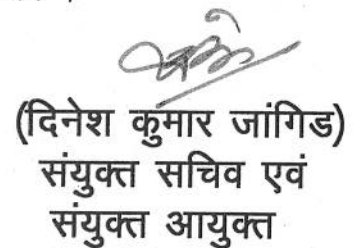 (दिनेश कुमार जांगिड)
संयुक्त सचिव एवं
संयुक्त आयुक्त